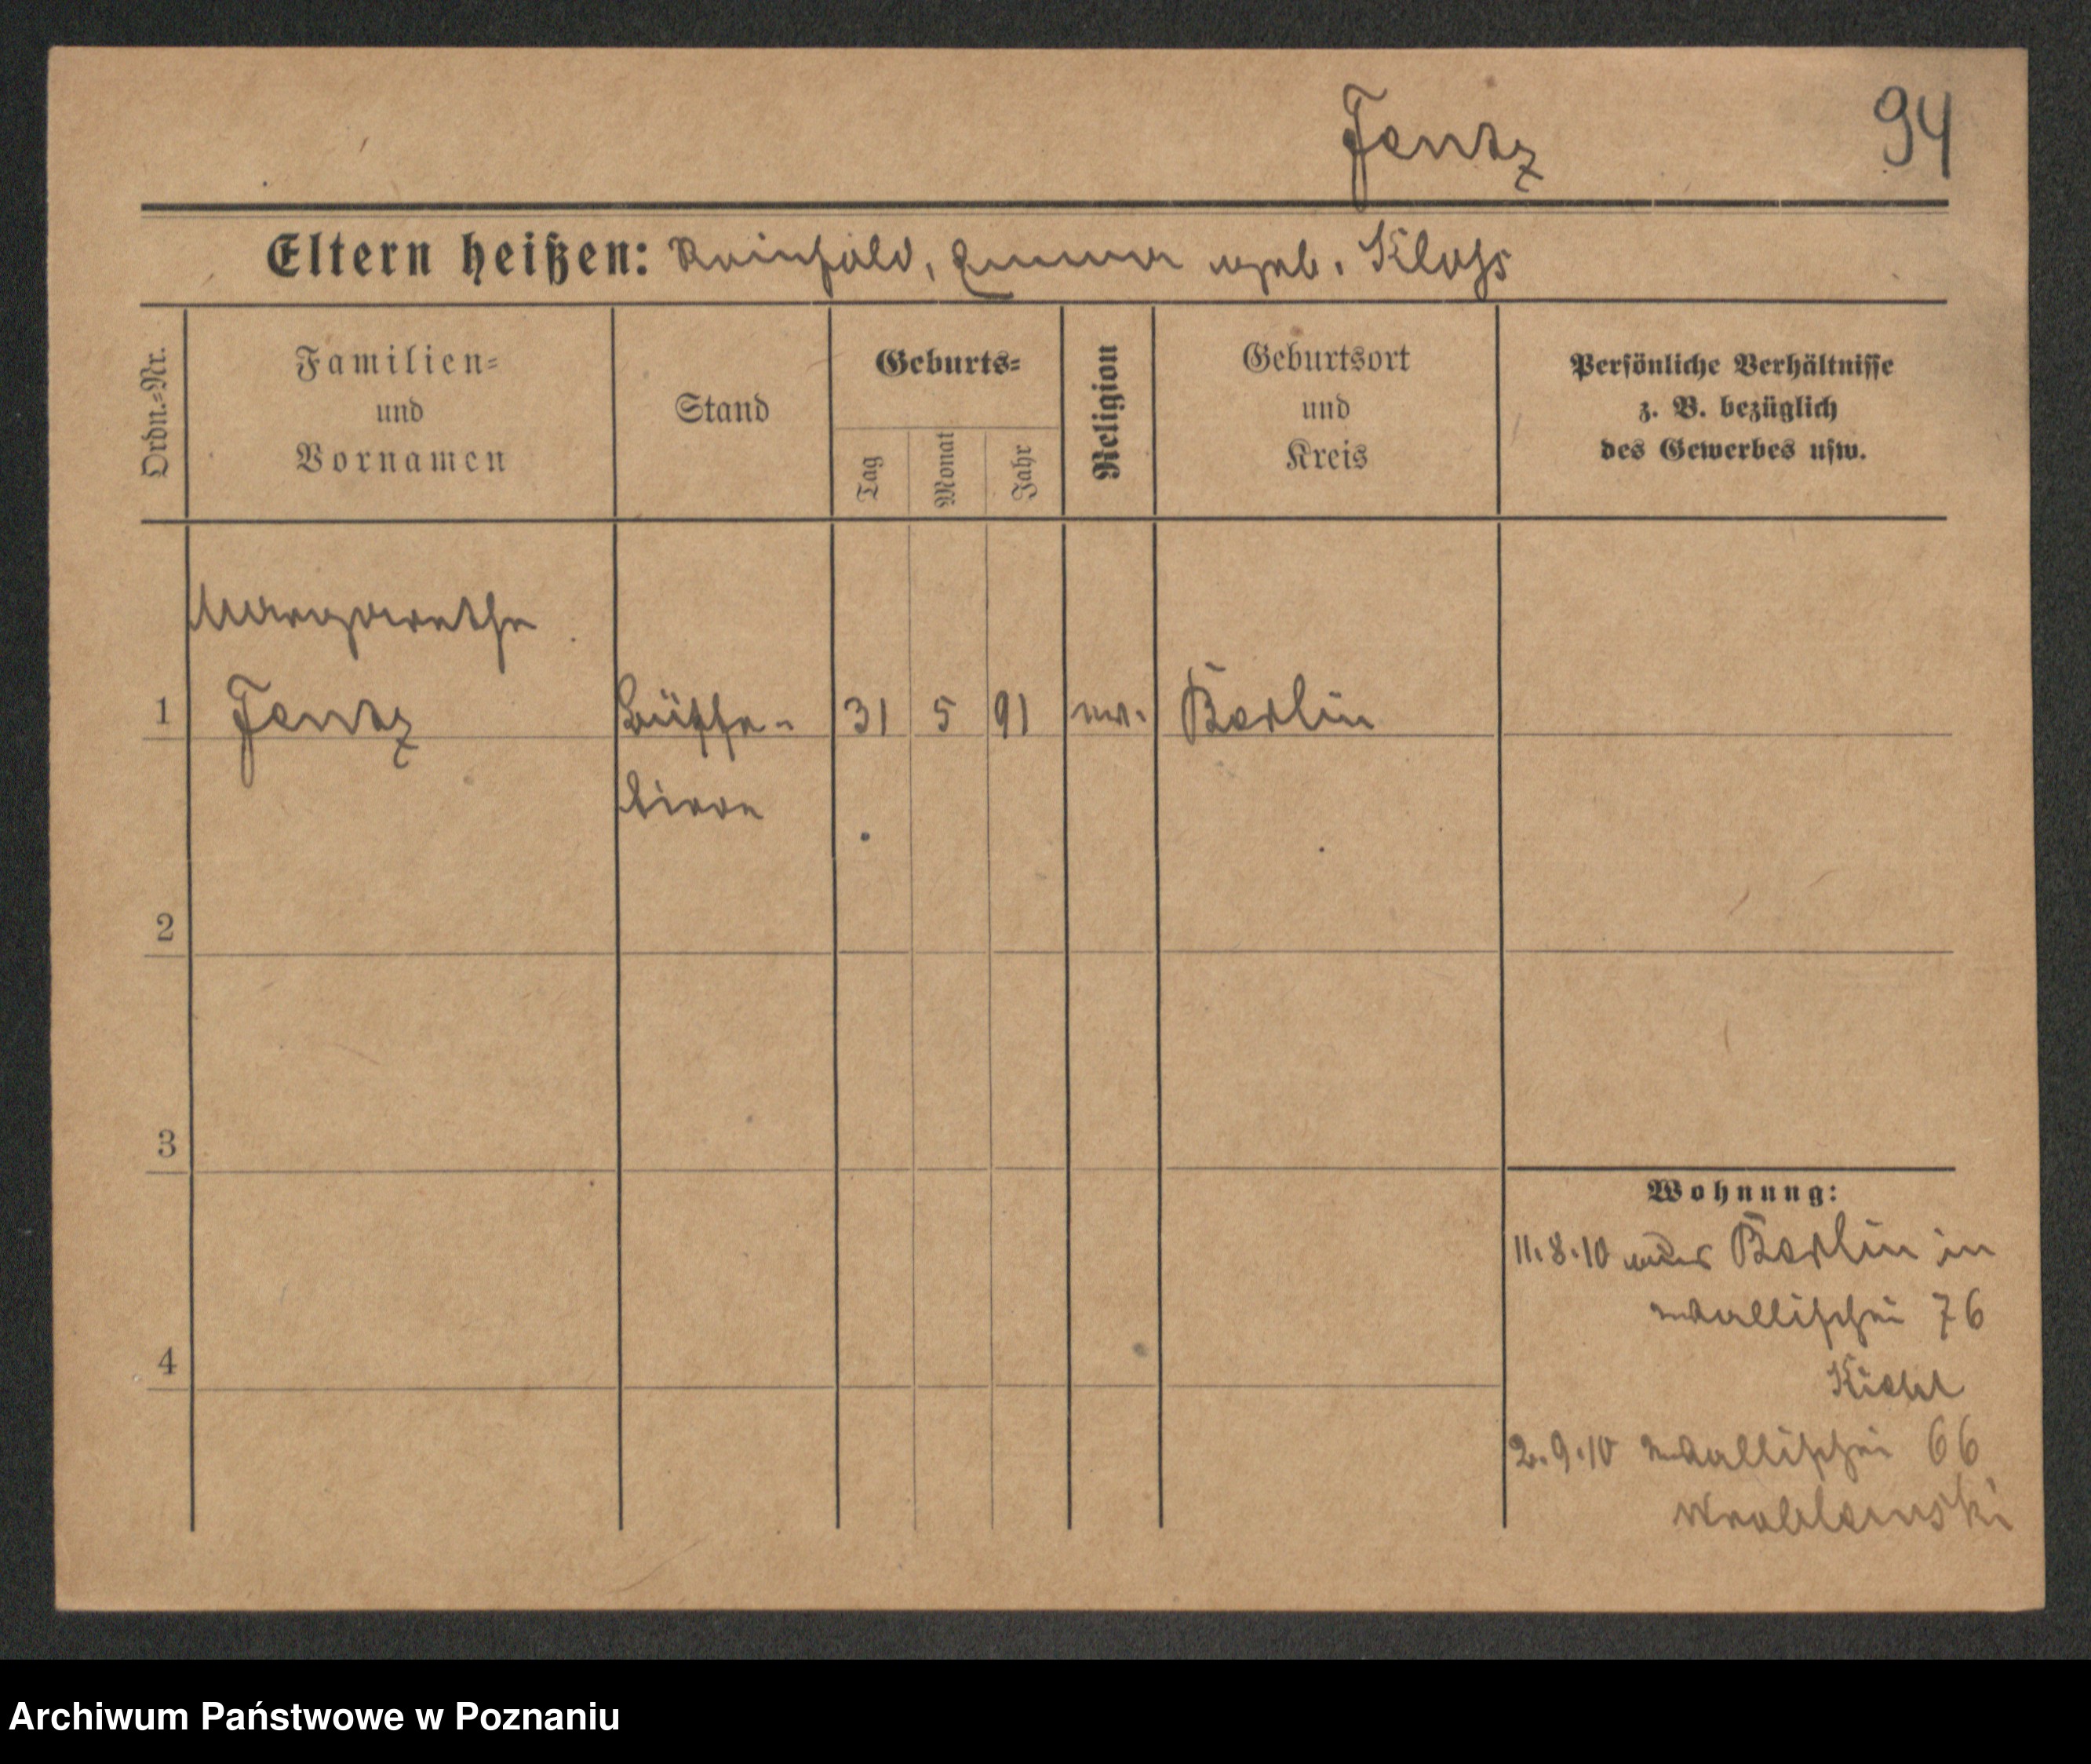 Jentz 94
Eltern heißen: Reinhold, Emma geb. Kloss
Ordn.-Nr.
Familien-
und
Vornamen
Stand
Geburts-
Tag
Monat
Jahr
Religion
Geburtsort
und
Kreis
Persönliche Verhältnisse
z. B. bezüglich
des Gewerbes usw.
Margarethe
1 Jentz Büffe- 31 5 91 ev. Berlin
tiere
2
3
4
Wohnung:
11.8.10 aus Berlin in
Wallischei 76
2.9.10 Wallischei 66
Archiwum Państwowe w Poznaniu